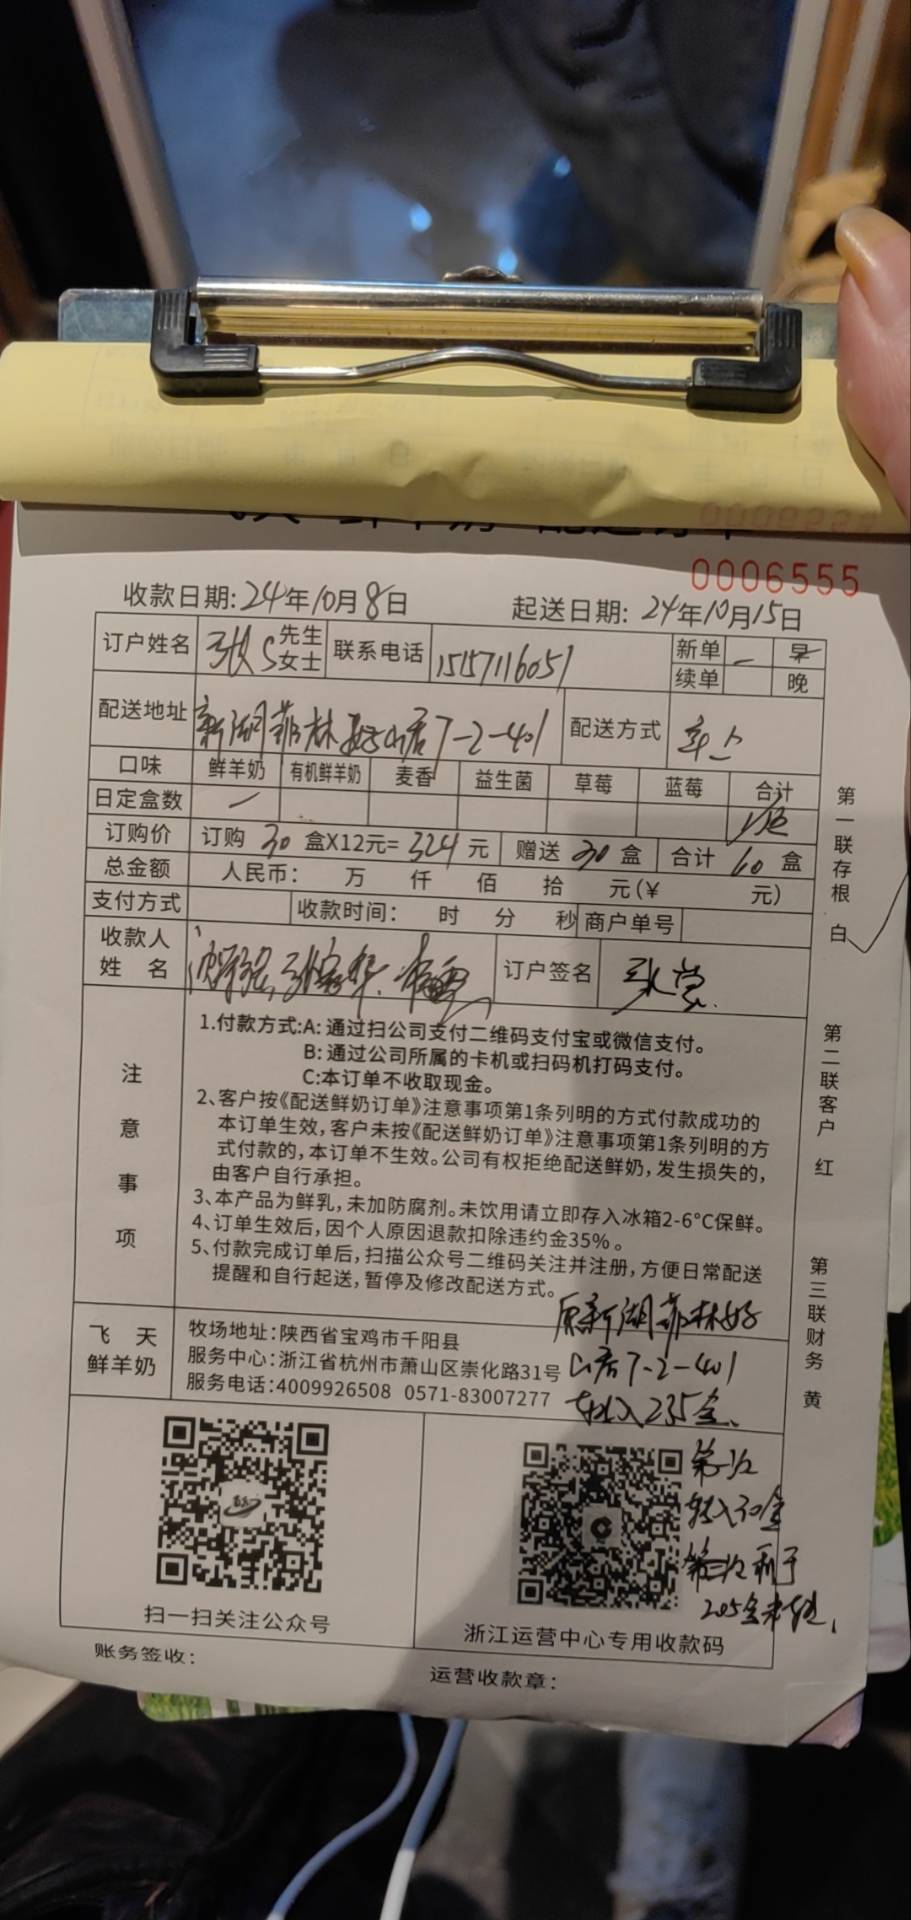 0006555
收款日期:24年10月8日 起送日期: 24年10月15日
订户姓名 张S 先生 女士 联系电话 15157116051 新单 续单 早 晚
配送地址 新湖菲林好山居7-2-401 配送方式
口味 鲜羊奶 有机鲜羊奶 麦香 益生菌 草莓 蓝莓 合计
日定盒数 一
订购价 订购 30 盒X12元= 324 元 赠送 30 盒 合计 60 盒
总金额 人民币: 万 仟 佰 拾 元(¥ 元)
支付方式 收款时间: 时 分 秒 商户单号
收款人姓名 订户签名 张
注意事项
1.付款方式:A: 通过扫公司支付二维码支付宝或微信支付。
B: 通过公司所属的卡机或扫码机打码支付。
C:本订单不收取现金。
2、客户按《配送鲜奶订单》注意事项第1条列明的方式付款成功的
本订单生效,客户未按《配送鲜奶订单》注意事项第1条列明的方
式付款的,本订单不生效。公司有权拒绝配送鲜奶,发生损失的,
由客户自行承担。
3、本产品为鲜乳,未加防腐剂。未饮用请立即存入冰箱2-6°C保鲜。
4、订单生效后,因个人原因退款扣除违约金35%。
5、付款完成订单后,扫描公众号二维码关注并注册,方便日常配送
提醒和自行起送,暂停及修改配送方式。
原新湖菲林好
山居7-2-401
转入235盒、
飞天
鲜羊奶
牧场地址:陕西省宝鸡市千阳县
服务中心:浙江省杭州市萧山区崇化路31号
服务电话:4009926508 0571-83007277
第一次
转入30盒
第二次剩于
205盒未转、
扫一扫关注公众号
浙江运营中心专用收款码
账务签收:
运营收款章:
第一联存根 白
第二联客户 红
第三联财务 黄